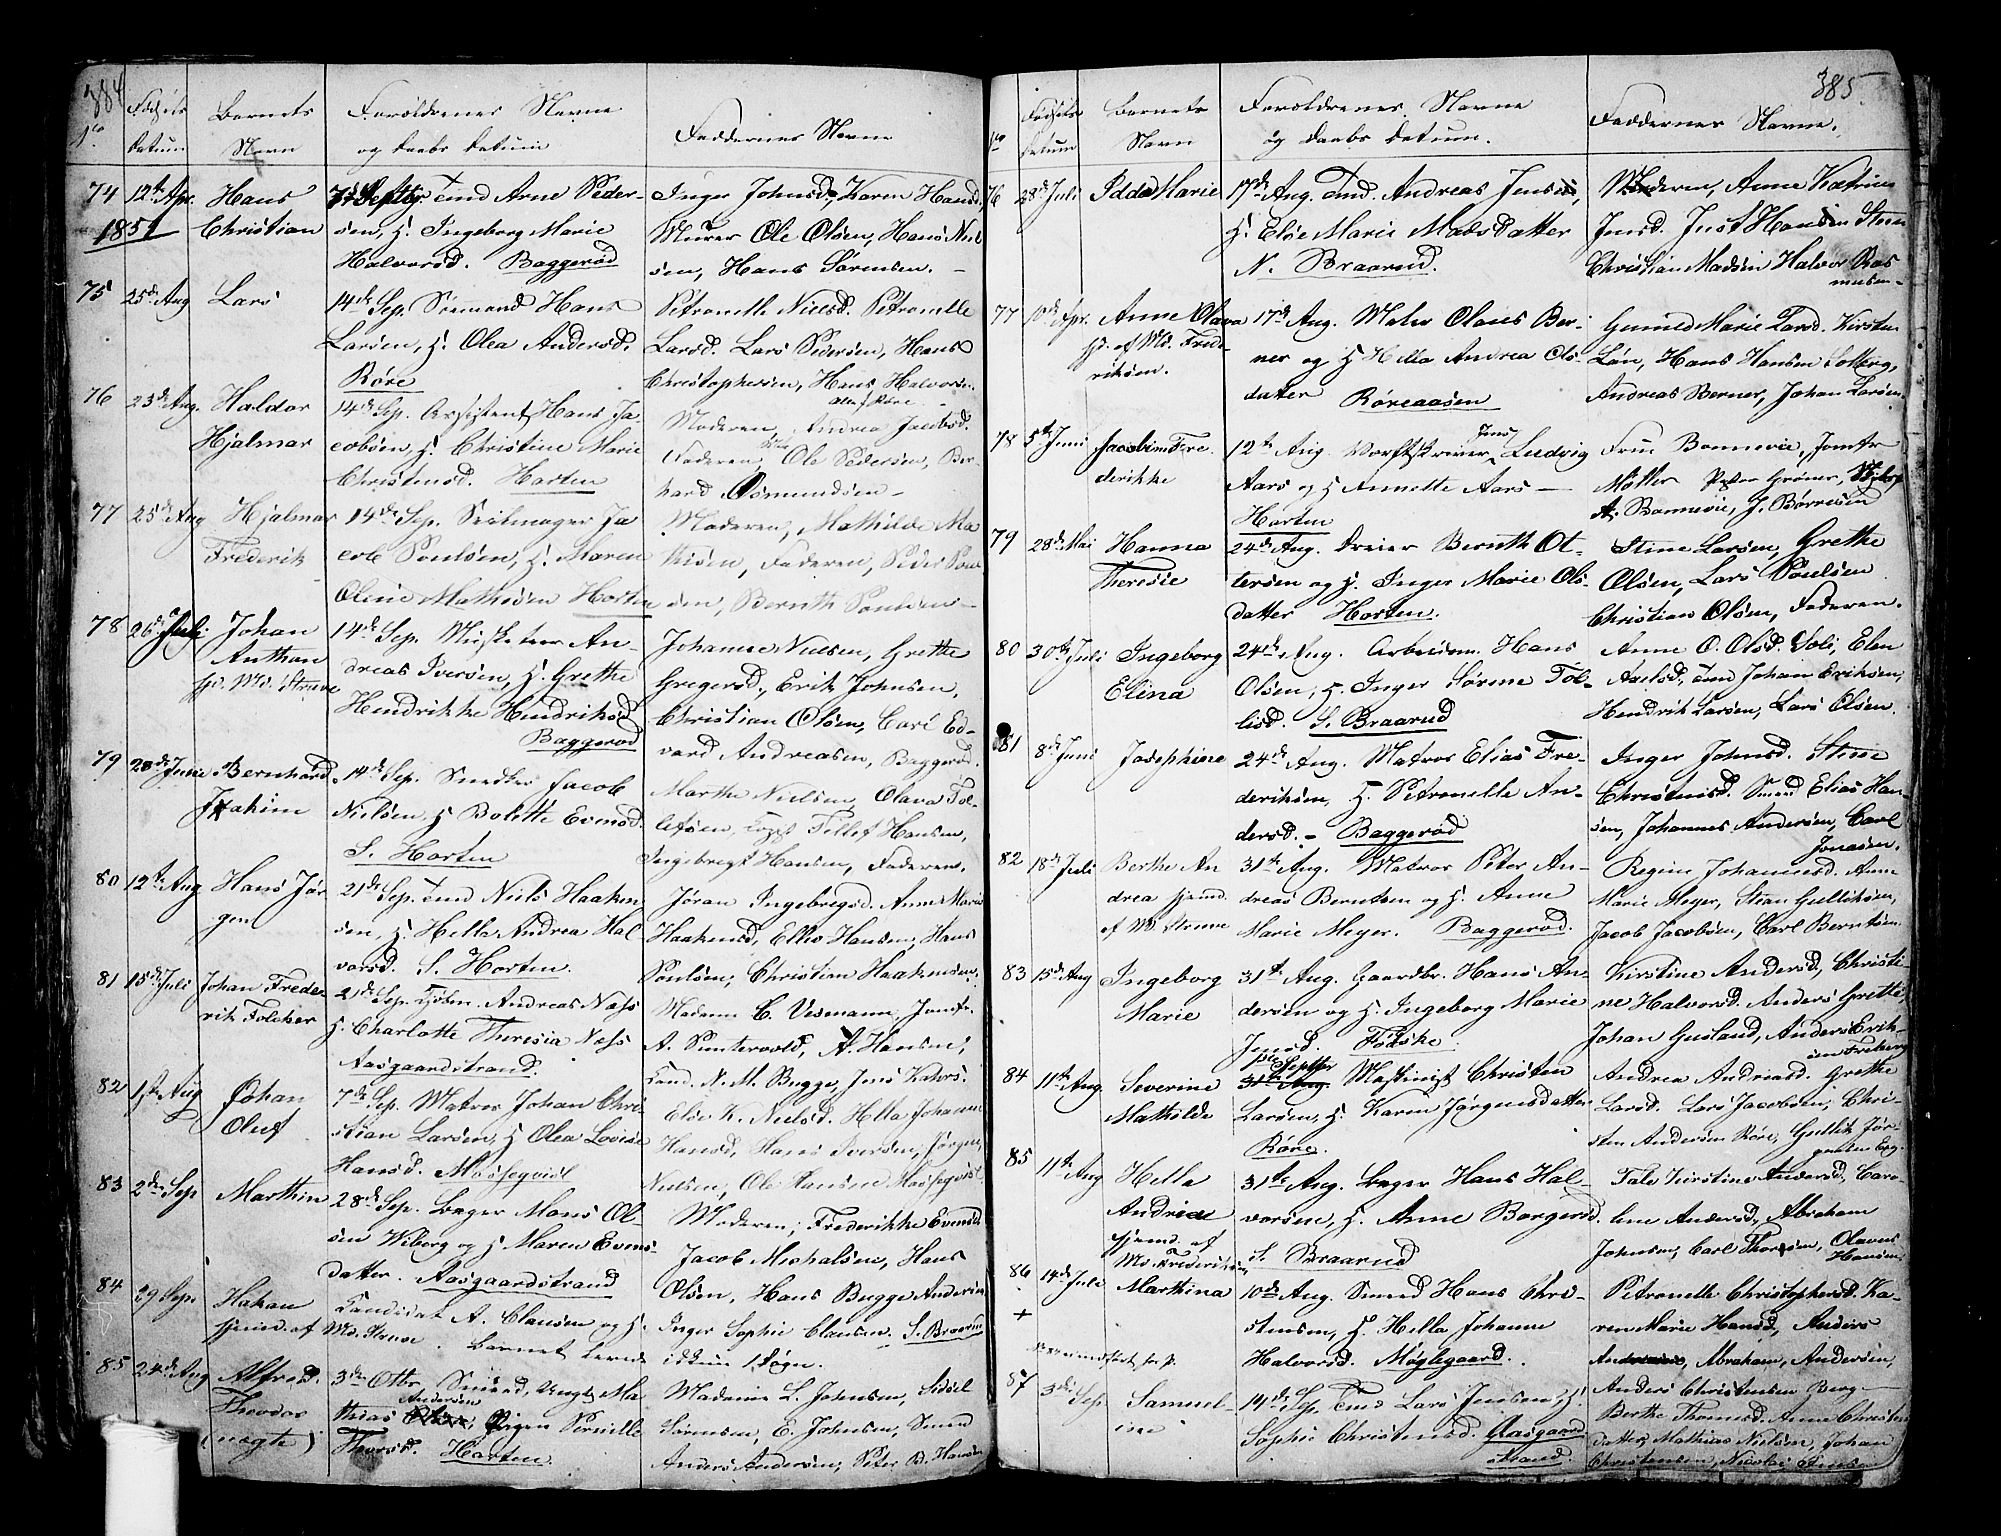 384
No
Fødsels
datum
Barnets
Navn
Forældrenes Navne
og daabs datum
Faddernes Navne
74 12te Apr.
1851
Hans
Christian
7de Septbr tmd Arne Peder-
sen, H. Ingeborg Marie
Halvorsd. Baggerød
Inger Johnsd., Karen Hansd,
Murer Ole Olsen, Hans Niel
sen, Hans Sørensen. –
75 25de Aug
Lars
14de Sep. Sømand Hans
Larsen, H. Olea Andersd.
Røre
Petronelle Nielsd. Petronelle
Larsd. Lars Pedersen, Hans
Christophersen, Hans Halvorsen
alle f. Røre
76 23de Aug.
Haldor
Hjalmar
14de Sep. Assistent Hans Ja-
cobsen, H. Christine Marie
Christensd. Horten
Moderen, Andrea Jacobsd.
Faderen, Ole Pedersen, Ber-
hard Asmundsen –
77 25de Aug
Hjalmar
Frederik
14de Sep. Seilmager Ja
cob Poulsen, H. Maren
Oline Mathisen Horten
Moderen, Mathilde Ma
thisen, Faderen, Peder Poul
sen, Bernth Poulsen –
78 26de Juli
Johan
Anthon
hj. Md. Struve
14de Sep. Musketeer An-
dreas Iversen, H. Grethe
Hendrikke Hendriksd
Baggerød
Johanne Nielsen, Grethe
Gregersd., Erik Johnsen,
Christian Olsen, Carl Ed-
vard Andreasen, Baggerød.
79 28de Juni
Bernhard
Joakim
14de Sep. Snedker Jacob
Nielsen, H Bolette Evensd.
S. Horten
Marthe Nielsen, Olava Tol-
lefsen, Tollef Hansen,
Ingebregt Hansen, Faderen.
80 12te Aug
Hans Jør
gen
21de Sep. tmd Niels Haaken
sen, H. Hella Andrea Hal
vorsd. S. Horten.
Jøran Ingebregsd. Anne Marie
Haakensd, Ellev Hansen, Hans
Poulsen, Christian Haakensen.
81 15de Juli
Johan Frede-
rik Folcker
21de Sep. Andreas Næss
H. Charlotte Theresia Næss
Aasgaardstrand.
Madame C. Vesmann, Jomfr.
A. Suntevold, A. Hansen,
Cand. N. M. Bugge, Jens Kahrs.
82 1ste Aug
Johan
Oluf
7de Sep. Matros Johan Chri-
stian Larsen, H. Olea Lovise
Hansd. Mossegvist
Else K. Nielsd. Hella Johanne
Hansd, Hans Iversen, Jørgen
Nielsen, Ole Hansen Mossegvist
83 2den Sep
Marthin
28de Sep. Bager Mons Ol-
sen Wiborg og H Maren Evens-
datter. Aasgaardstrand
Moderen, Frederikke Evensd
Jacob Michalsen, Hans
Olsen, Hans Bugge Andersen
84 29 Sep.
Hakan
hjemd. af
Md. Struve.
Kandidat A. Clausen og H.
Inger Sophie Clausen. S. Braarud
Barnet levede ikkun 1 Døgn.
85 24de Aug
Alfred
Theodor
(uægte)
3de Otbr Smed, Ungk. Ma-
thias Andersen, Pigen Pernille
Thorsd. Horten.
Madame L. Johnsen, Sidsel
Sørensen, E. Johnsen, Smed
Anders Andersen, Peter B. Hansen
385
No
Fødsels
datum
Barnets
Navn
Forældrenes Navne
og daabs datum.
Faddernes Navne.
76 28de Juli
Idda Marie
17de Aug. tmd. Andreas Jensen,
H. Else Marie Madsdatter
N. Braarud.
Moderen, Anne Katrine
Jensd. Just Hansen Steen
Christian Madsen Halvor Ras
musen –
77 10de Apr.
Anne Olava
hj. af Md. Frede-
riksen.
17de Aug. Maler Olaus Ber-
ner og H Hella Andrea Ols
datter Røreaasen
Gunild Marie Larsd. Kirsten
Løn, Hans Hansen Solberg,
Andreas Berner, Johan Larsen.
78 5te Juni
Jacobine Fre
derikke
12te Aug. Værftskriver Jens Ludvig
Aars og H Annette Aars –
Horten
Frue Bonnevie, Jomfr
Møller Peter Grøner,
A. Bonnevie, J. Børresen
79 28de Mai
Hanna
Theresie
24de Aug. Dreier Bernth Ot-
tersen og H. Inger Marie Ols-
datter Horten.
Stine Larsen, Grethe
Olsen, Lars Poulsen
Christian Olsen, Faderen.
80 30te Juli
Ingeborg
Elina
24de Aug. Arbeidsm. Hans
Olsen, H. Inger Sørine Tol-
lisd. S. Braarud
Anne O. Olsd. Soli, Elen
Axelsd, tmd Johan Eriksen,
Hendrik Larsen, Lars Olsen.
81 8de Juni
Josephine
24de Aug. Matros Elias Fre-
deriksen, H. Petronelle An-
dersd. – Baggerød
Inger Johnsd. Stine
Christensd. Smed Elias Han-
sen, Johannes Andersen, Carl
Jonasen.
82 18de Juli
Berthe An
drea hjemd.
af Md. Struve
31te Aug. Matros Peter An-
dreas Berntsen og H. Anne
Marie Meyer. Baggerød.
Regine Johannesd. Anne
Marie Meyer, Sten Gulliksen,
Jacob Jacobsen, Carl Berntsen
83 15de Aug
Ingeborg
Marie
31te Aug. Gaardbr. Hans An-
dersen og H. Ingeborg Marie
Jensd. Falske
Kirstine Andersd, Christi-
ne Halvorsd. Anders Grette
Johan Gusland, Anders Erik-
sen Freberg
84 11te Aug.
Severine
Mathilde
1ste Septbr
31te Aug. Maskinist Christen
Larsen, H. Karen Jørgensdatter
Røre.
Andrea Andreasd. Grethe
Larsd. Lars Jacobsen, Chri-
sten Andersen Røre, Gullik Jør
gensen Eeg.
85 11te Aug
Hella
Andrea
hjemd. af
Md. Frederiksen
31te Aug. Bager Hans Hal-
vorsen, H. Anne Borgersd.
S. Braarud
Tale Kirstine Andersd. Caro-
line Andersd, Abraham
Johnsen, Carl Thorsen, Olaves
Hansen
86 14de Juli
+
Marthina
10de Aug. Smed Hans Chri-
stensen, H. Hella Johanne
Halvorsd. Møglegaard.
Petronelle Christophersd. Ka-
ren Marie Hansd, Anders
Andersen, Abraham, Andersen,
Anders Christensen Berg
87 3de Sep.
Samuel-
ine
14de Sep. Tmd Lars Jensen H.
Sophie Christensd. Aasgaard
strand.
Berthe Thomasd. Anne Christens
datter, Mathias Nielsen, Johan
Christensen, Nicolai Jensen